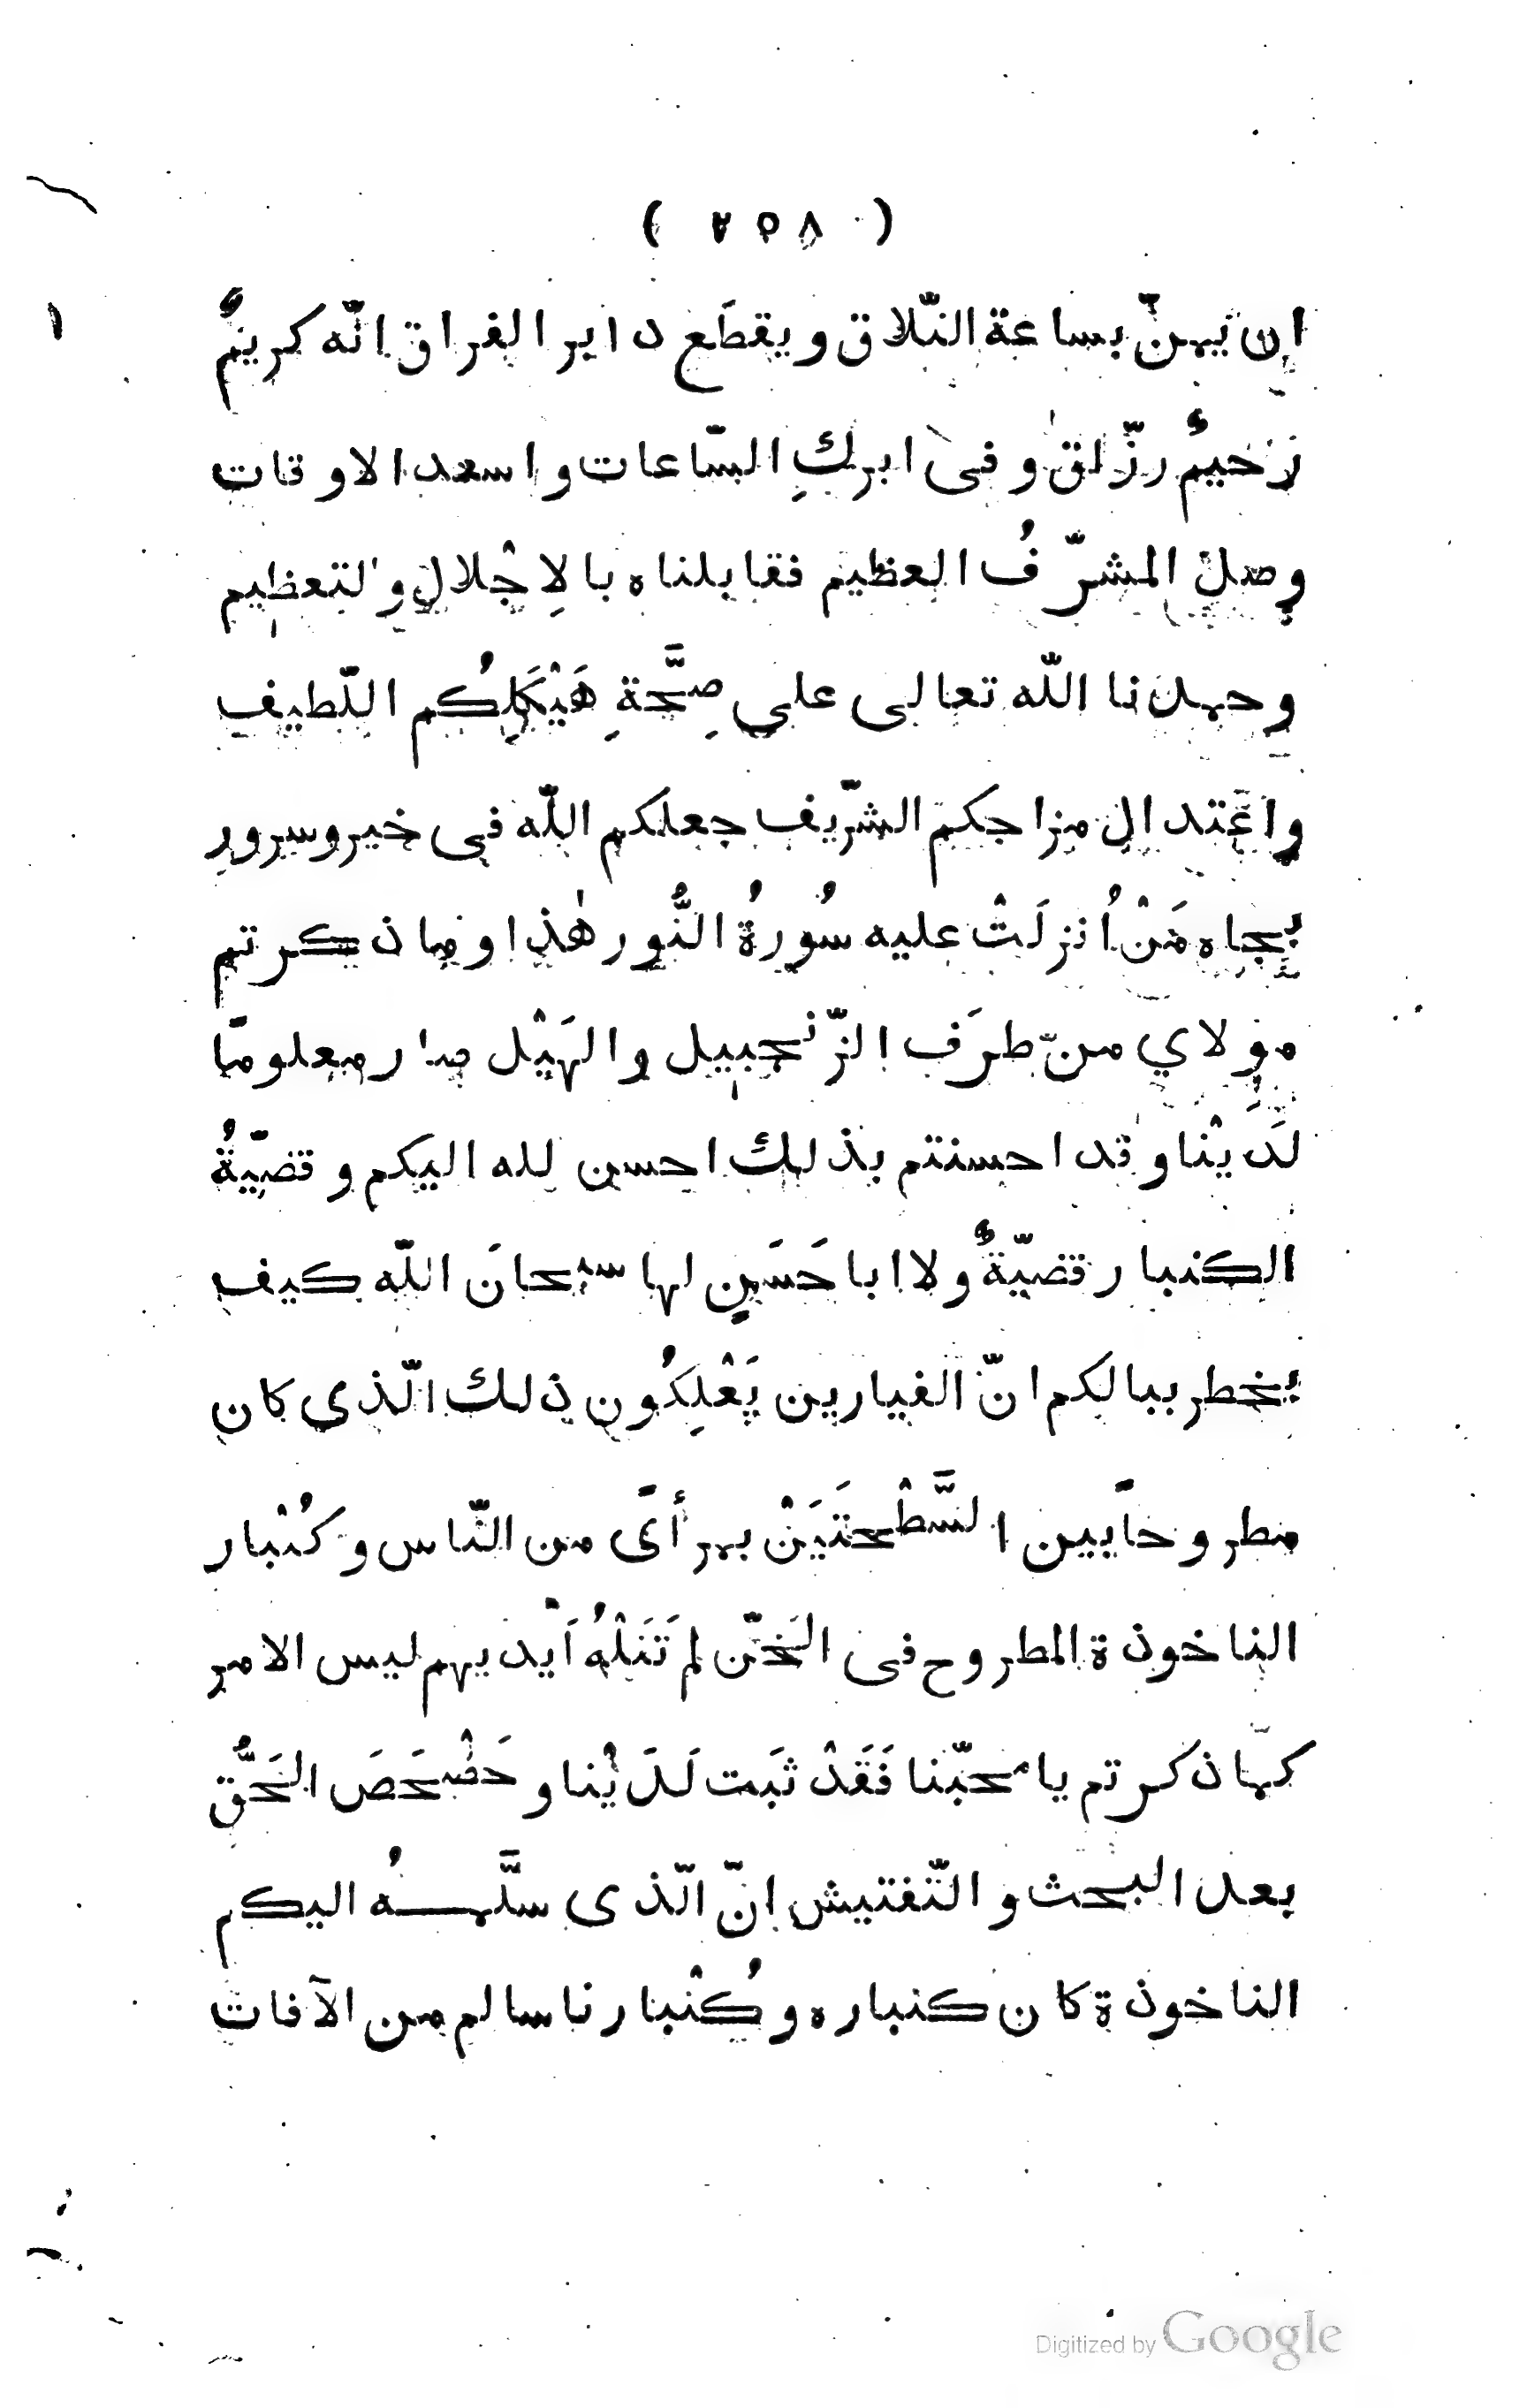 ( ٢٥٨ )
ان يمنّ بساعة التّلاق ويقطَع دابر الفراق انّه كريمٌ
رَحيمٌ رزّاق وفى ابركِ السّاعات واسعد الاوقات
وصل المشرّفُ العظيم فقابلناه بالاِجْلال والتعظيم
وحمدنا اللّه تعالى على صِحَّةِ هَيْكَلِكُم اللّطيف
واعْتدال مزاجكم الشّريف جعلكم اللّه فى خير وسرور
بجاه مَنْ اُنزلَتْ عليه سُورةُ النُّور هٰذا وما ذكرتم
مولاي من طرَف الزّنجبيل والهَيْل صار معلومًا
لَدَيْنا وقد احسنتم بذلك احسن لله اليكم وقضيّةُ
الكنبار قضيّةٌ ولا ابا حَسَنٍ لها سبحانَ اللّه كيف
يخطر ببالكم انّ الفيارين يَعْلِكُون ذلك الّذى كان
مطروحًا بين السَّطْحتَيَنْ بمرأًى من النّاس وكُنْبار
الناخوذة المطروح فى الخَنّ لم تَنَلْهُ اَيْديهم ليس الامر
كما ذكرتم يا محبّنا فَقَدْ ثبَت لَدَيْنا وحَصْحَصَ الحَقُّ
بعد البحث والتّفتيش انّ الّذى سلَّمهُ اليكم
الناخوذة كان كنباره وكُنْبارنا سالم من الآفات
١
Digitized by Google